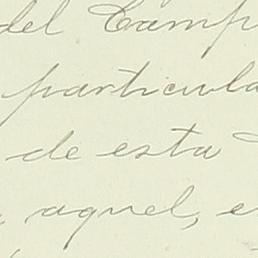 del Camp
particula
de esta
aquel, e